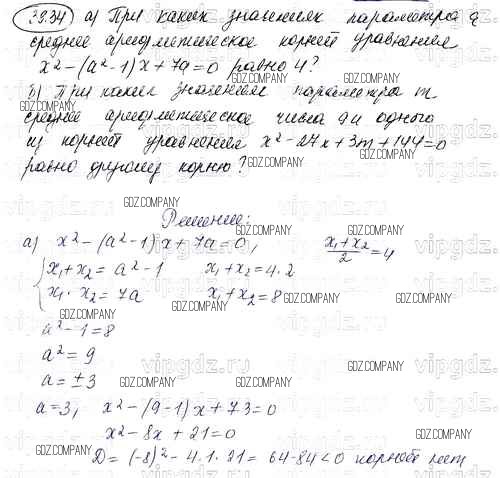 38.34) а) При каких значениях параметра а
среднее арифметическое корней уравнения
x² - (a² - 1)x + 7a = 0 равно 4?
б) При каких значениях параметра m
среднее арифметическое числа 9 и одного
из корней уравнения x² - 27x + 3m + 144 = 0
равно другому корню?
Решение:
а) x² - (a² - 1)x + 7a = 0, (x₁ + x₂)/2 = 4
{ x₁ + x₂ = a² - 1 x₁ + x₂ = 4 · 2
x₁ · x₂ = 7a x₁ + x₂ = 8
a² - 1 = 8
a² = 9
a = ±3
a = 3, x² - (9 - 1)x + 7·3 = 0
x² - 8x + 21 = 0
D = (-8)² - 4 · 1 · 21 = 64 - 84 < 0 корней нет